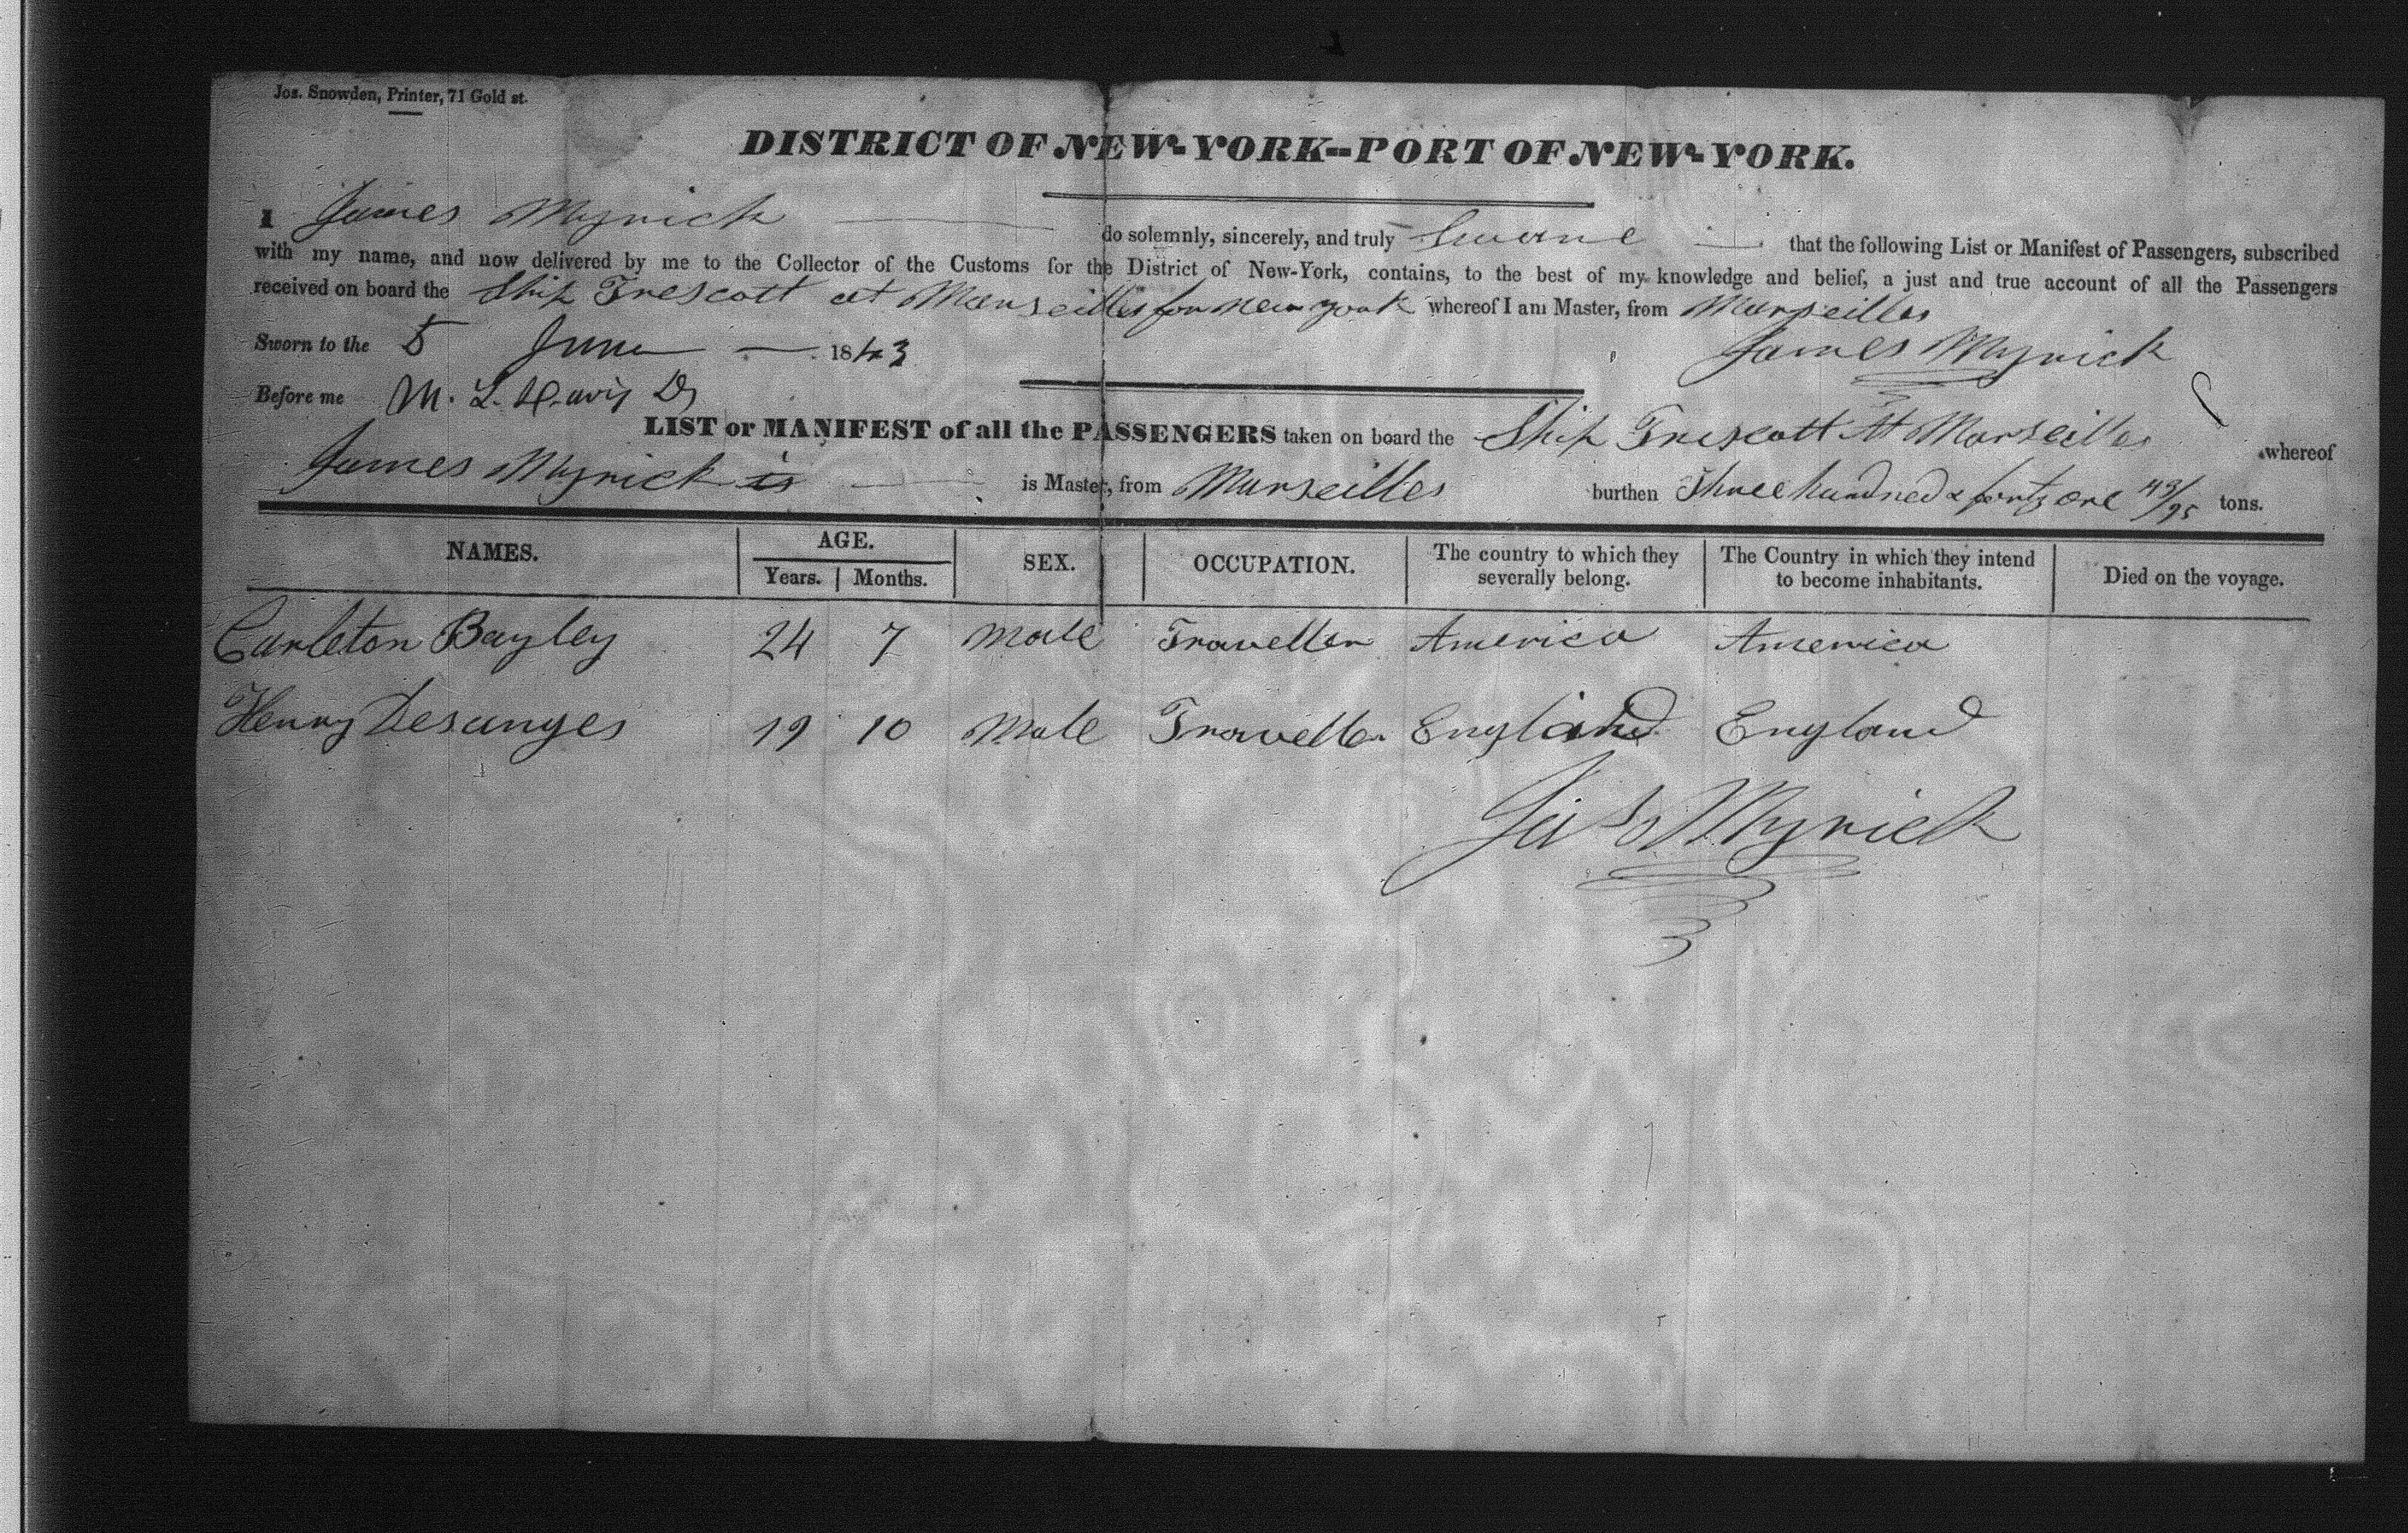 Jos. Snowden, Printer, 71 Gold st.
DISTRICT OF NEW-YORK--PORT OF NEW-YORK.
I James Myrick do solemnly, sincerely, and truly Sware that the following List or Manifest of Passengers, subscribed
with my name, and now delivered by me to the Collector of the Customs for the District of New-York, contains, to the best of my knowledge and belief, a just and true account of all the Passengers
received on board the Ship Trescott at Marseilles for New York whereof I am Master, from Marseilles
Sworn to the 5 June 1843 James Myrick
Before me M. L. Davis
LIST or MANIFEST of all the PASSENGERS taken on board the Ship Trescott At Marseilles whereof
James Myrick is is Master, from Marseilles burthen Three hundred & forty one 43/95 tons.
NAMES. AGE. Years. Months. SEX. OCCUPATION. The country to which they severally belong. The Country in which they intend to become inhabitants. Died on the voyage.
Carleton Bayley 24 7 Male Traveller America America
Henry Desanges 19 10 Male Traveller England England
Jas Myrick